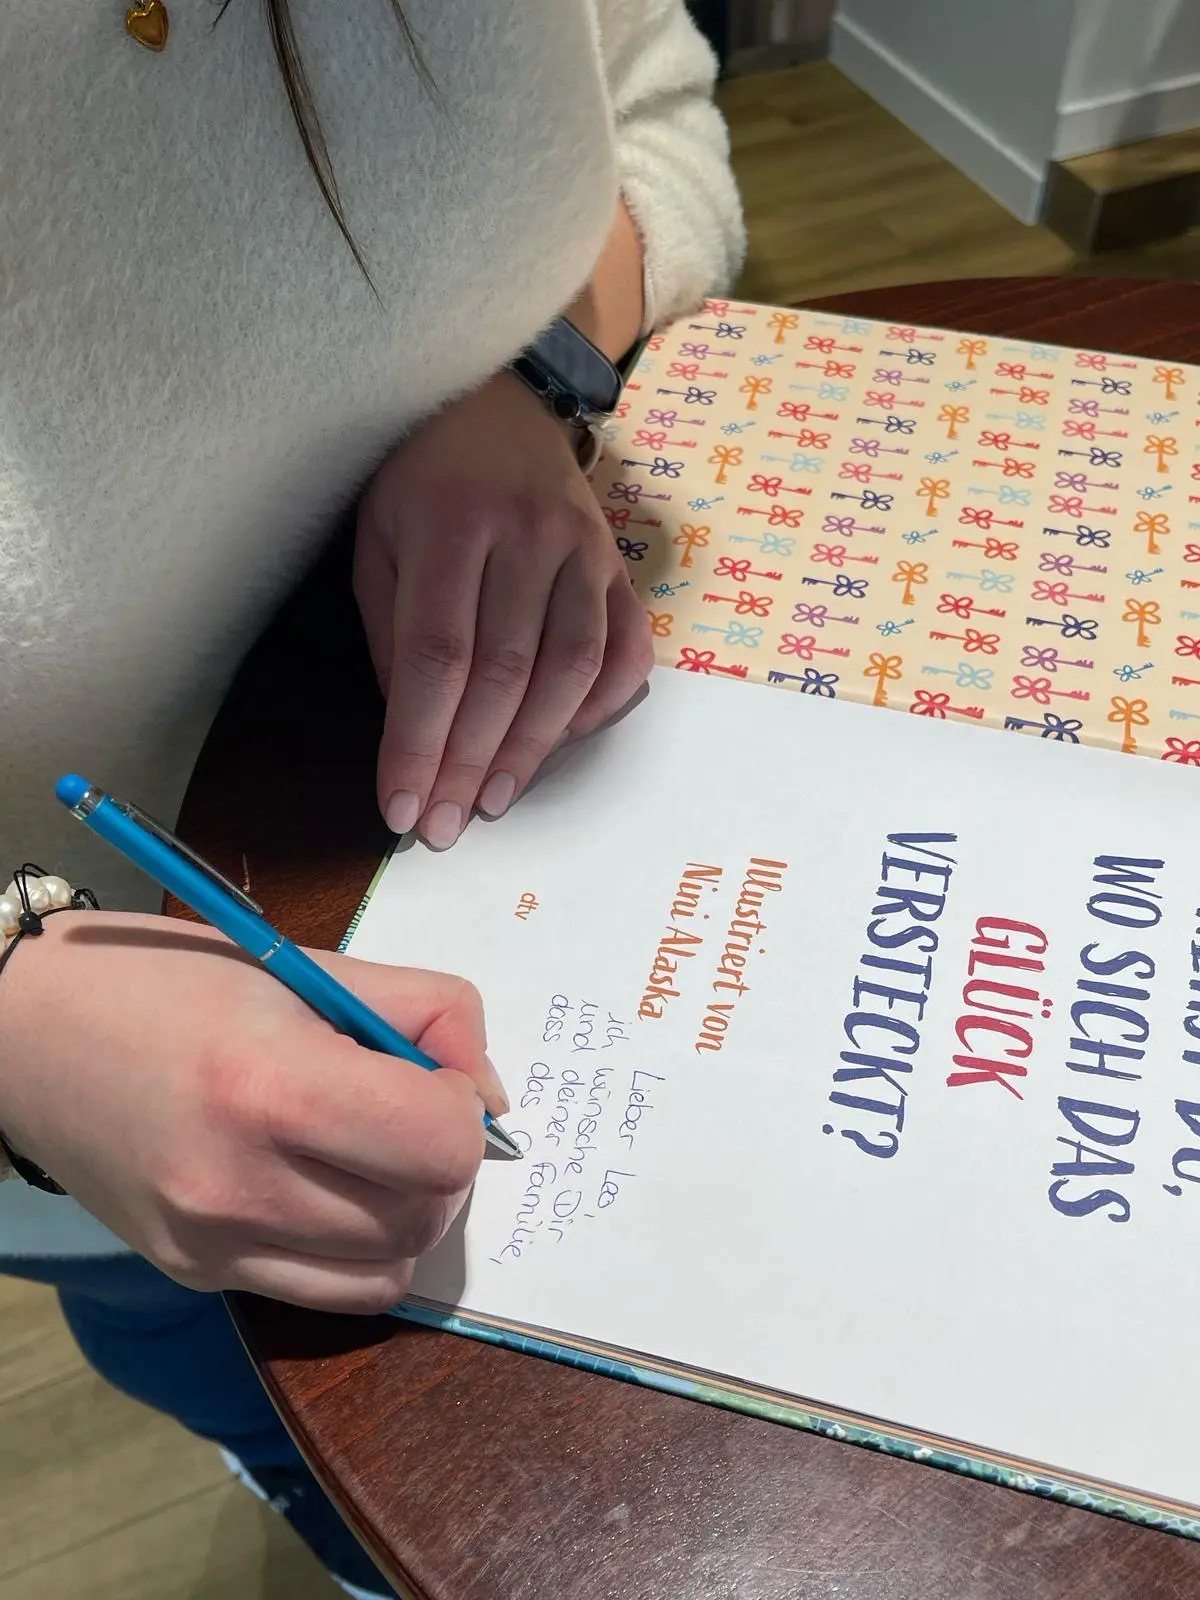 DU,
WO SICH DAS
GLÜCK
VERSTECKT?
Illustriert von
Nini Alaska
Lieber Leo,
ich wünsche Dir
und deiner Familie,
dass das
dtv